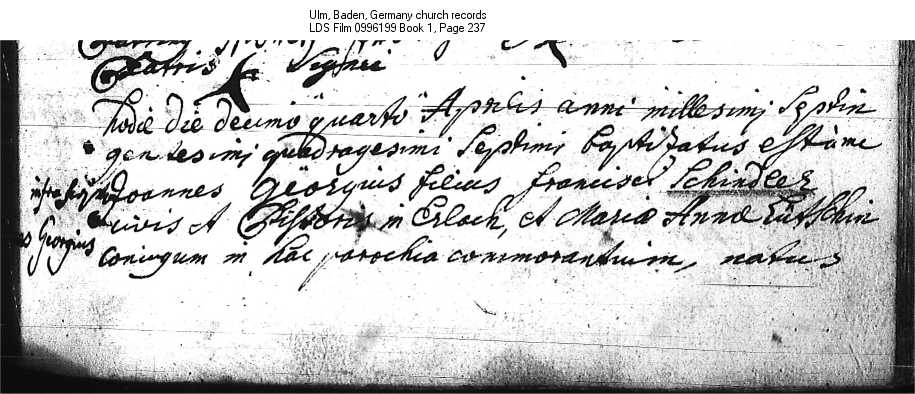 Ulm, Baden, Germany church records
LDS Film 0996199 Book 1, Page 237
Patris
hodie die decimo quarto Aprilis anni millesimi septin
gentesimi quadragesimi septimi baptizatus est a me
Joannes Georgius filius Francisci Schindler
civis et in Erlach, et Maria Anna
Georgius
coniugum in hac parochia commorantium, natus